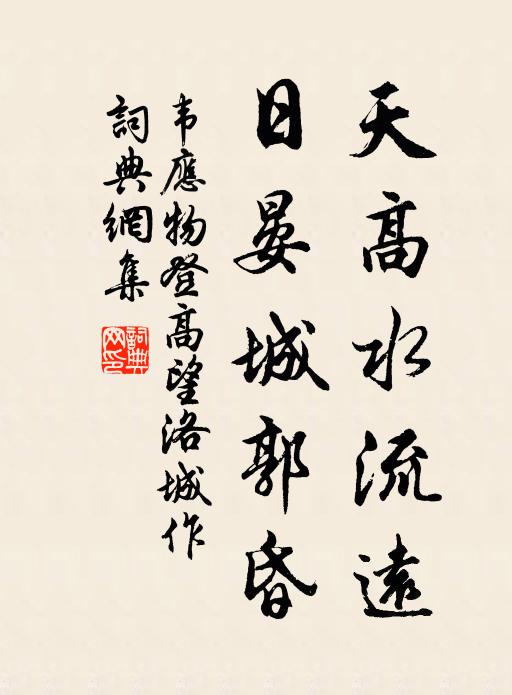 天高水流遠
日晏城郭昏
韦應物登高望洛城作
詞典網集
詞典网印